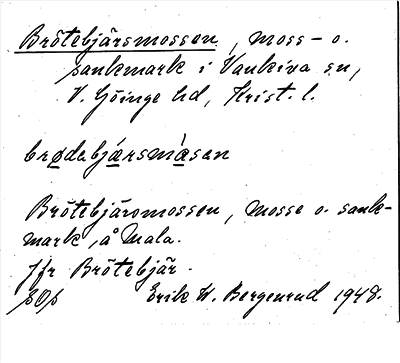 Brötebjärsmossen, moss- o.
sankmark i Vankiva sn,
V. Göinge hd, Krist. l.
brødebjársmàsan
Brötebjärsmossen, mosse o. sank-
mark, å Mala.
Jfr Brötebjär.
Erik W. Bergenrud 1948.